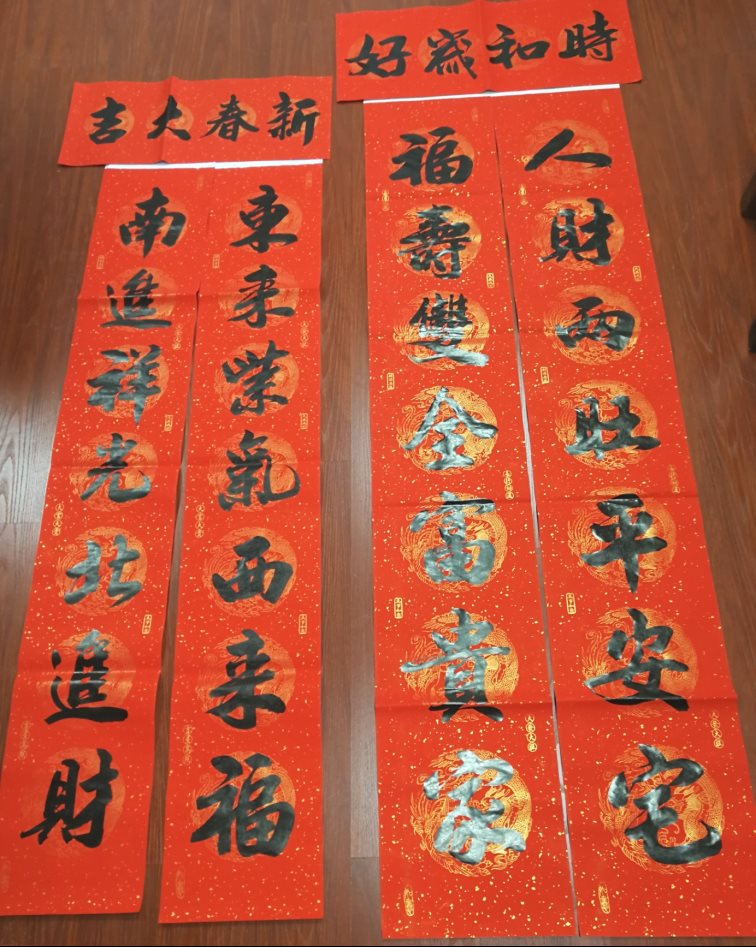 時和歲好
人財兩旺平安宅
福壽雙全富貴家
新春大吉
東來紫氣西來福
南進祥光北進財